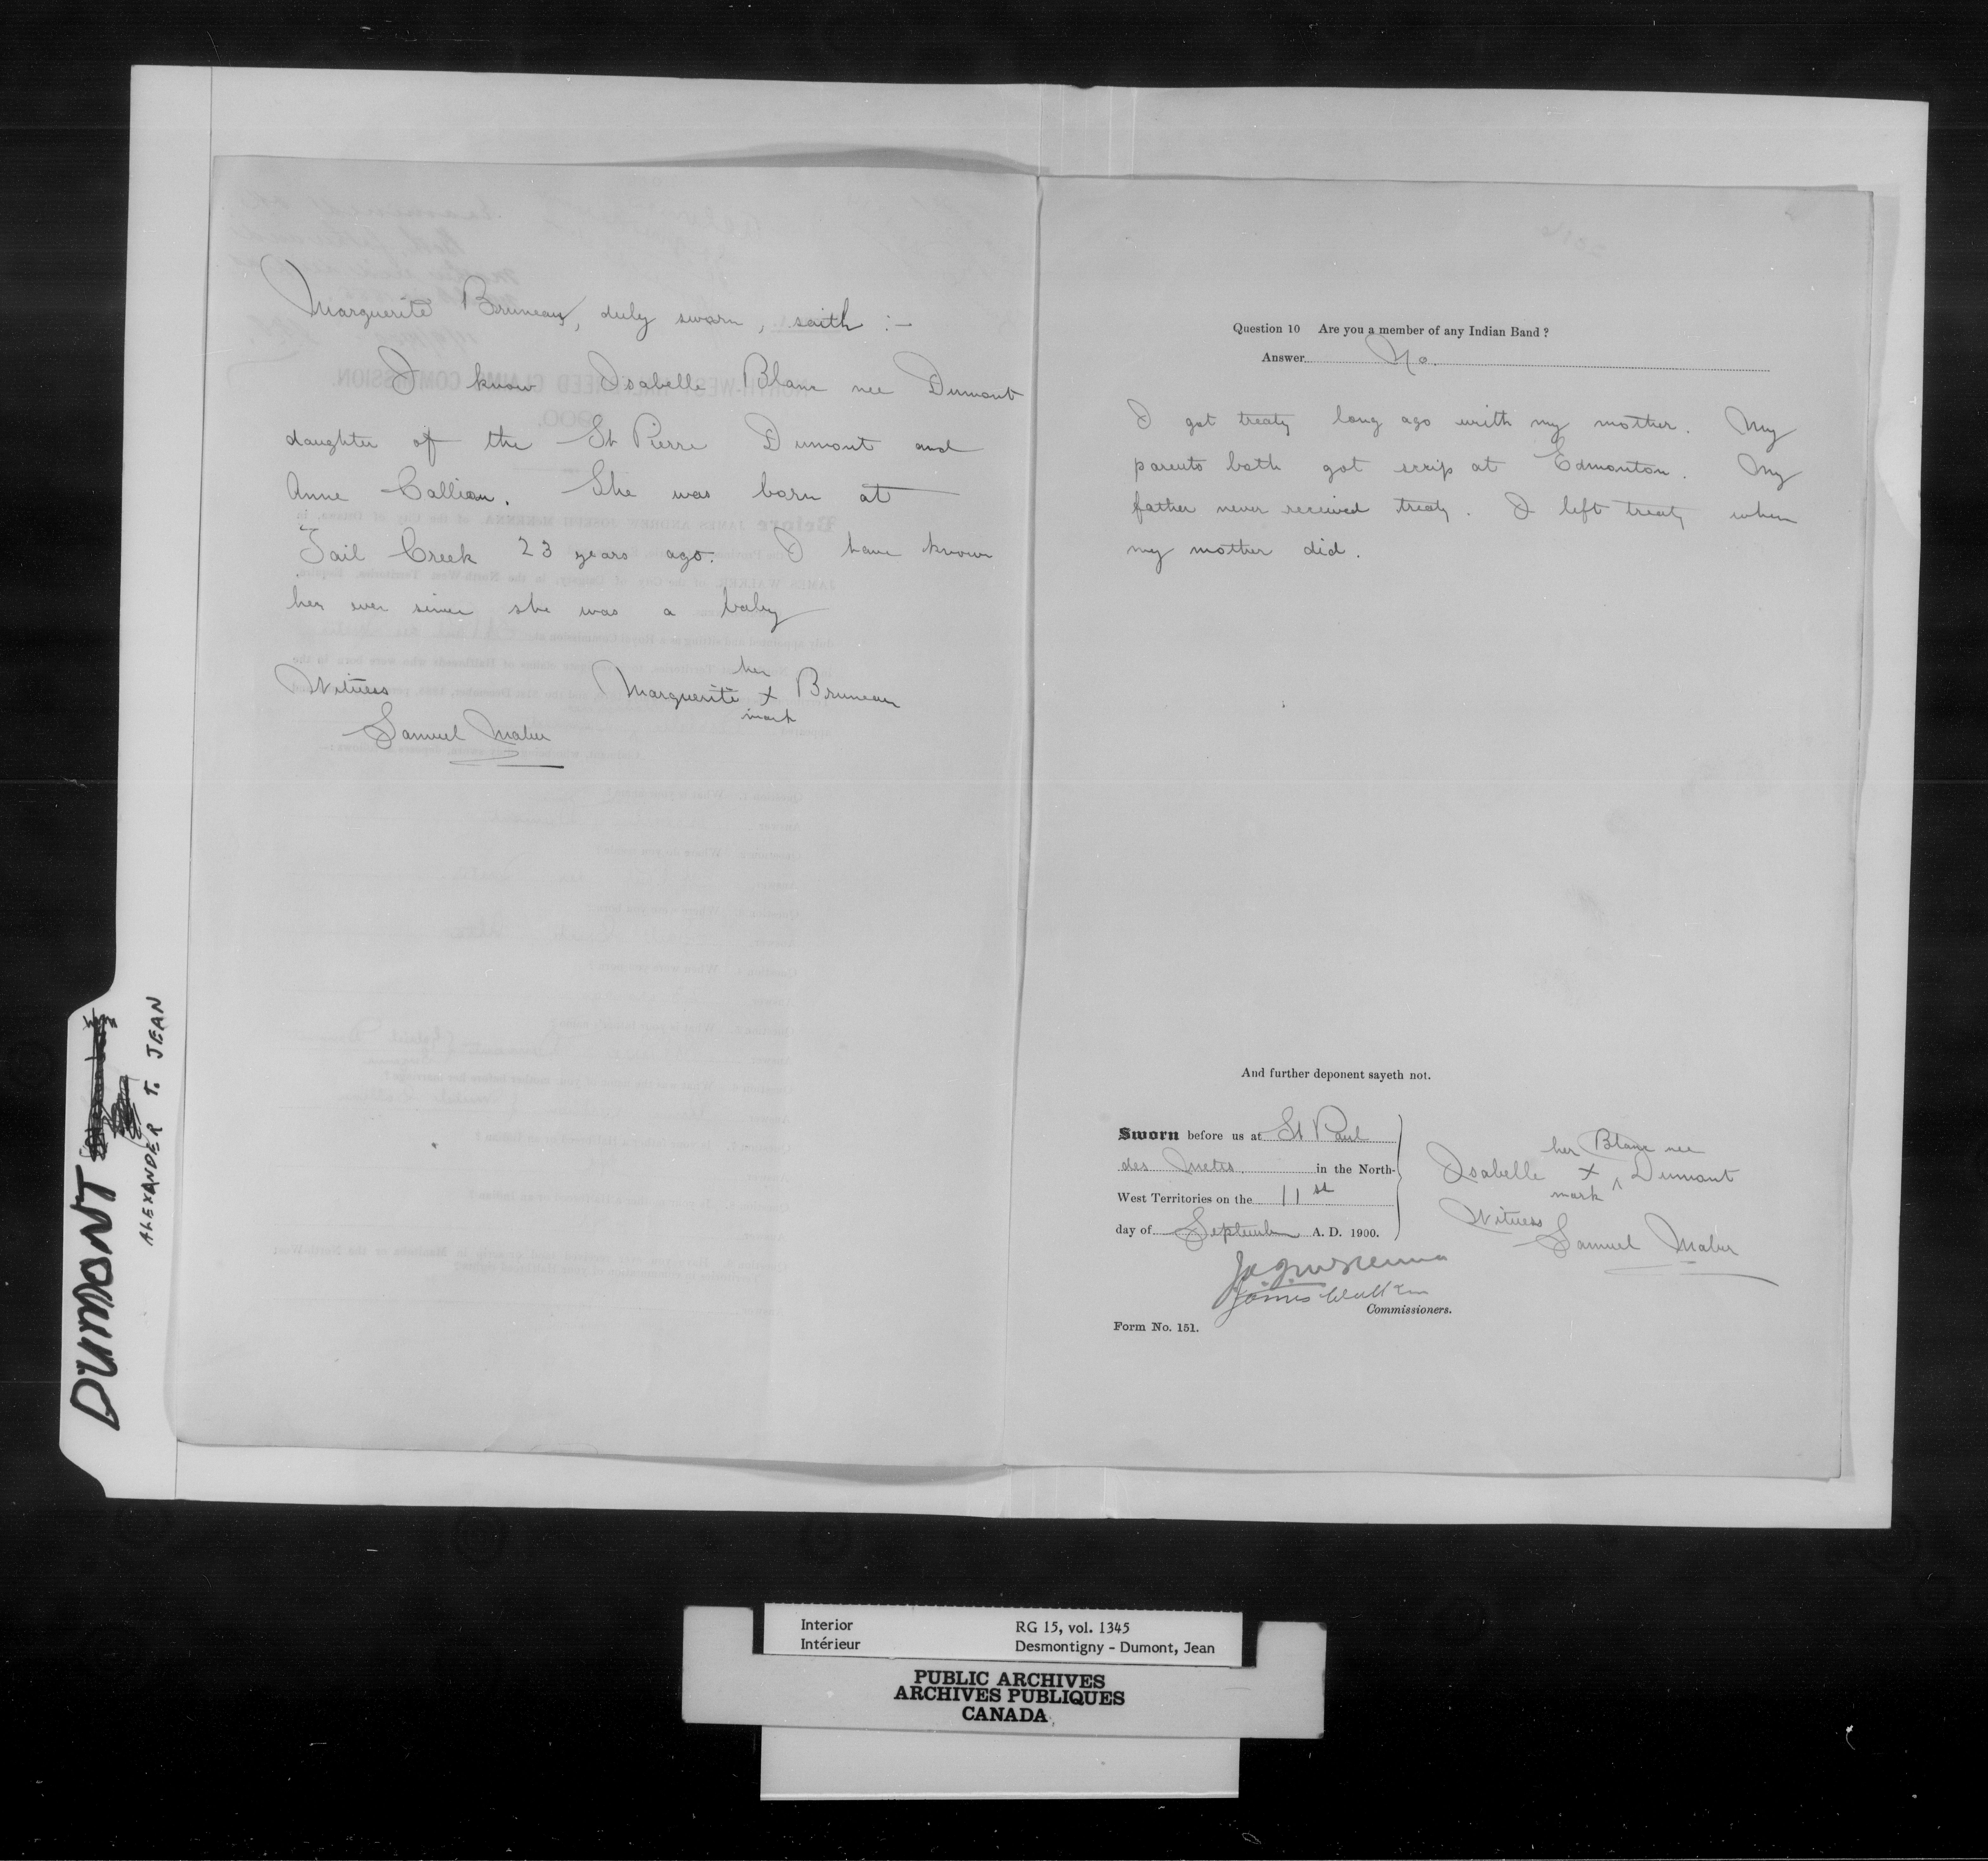 Marguerite Bruneau, duly sworn, saith :-
I know Isabelle Blanc nee Dumont
daughter of the St Pierre Dumont and
Anne Callion. She was born at
Tail Creek 23 years ago. I have known
her ever since she was a baby
her
Witness Marguerite X Bruneau
mark
Samuel Maber
Question 10 Are you a member of any Indian Band ?
Answer No.
I got treaty long ago with my mother. My
parents both got scrip at Edmonton. My
father never received treaty. I left treaty when
my mother did.
And further deponent sayeth not.
Sworn before us at St Paul
des Metis in the North-
West Territories on the 11st
day of September A. D. 1900.
her Blanc nee
Isabelle X ^ Dumont
mark
Witness
Samuel Maber
James Walker
Commissioners.
Form No. 151.
DUMONT
ALEXANDER T. JEAN
Interior RG 15, vol. 1345
Intérieur Desmontigny - Dumont, Jean
PUBLIC ARCHIVES
ARCHIVES PUBLIQUES
CANADA